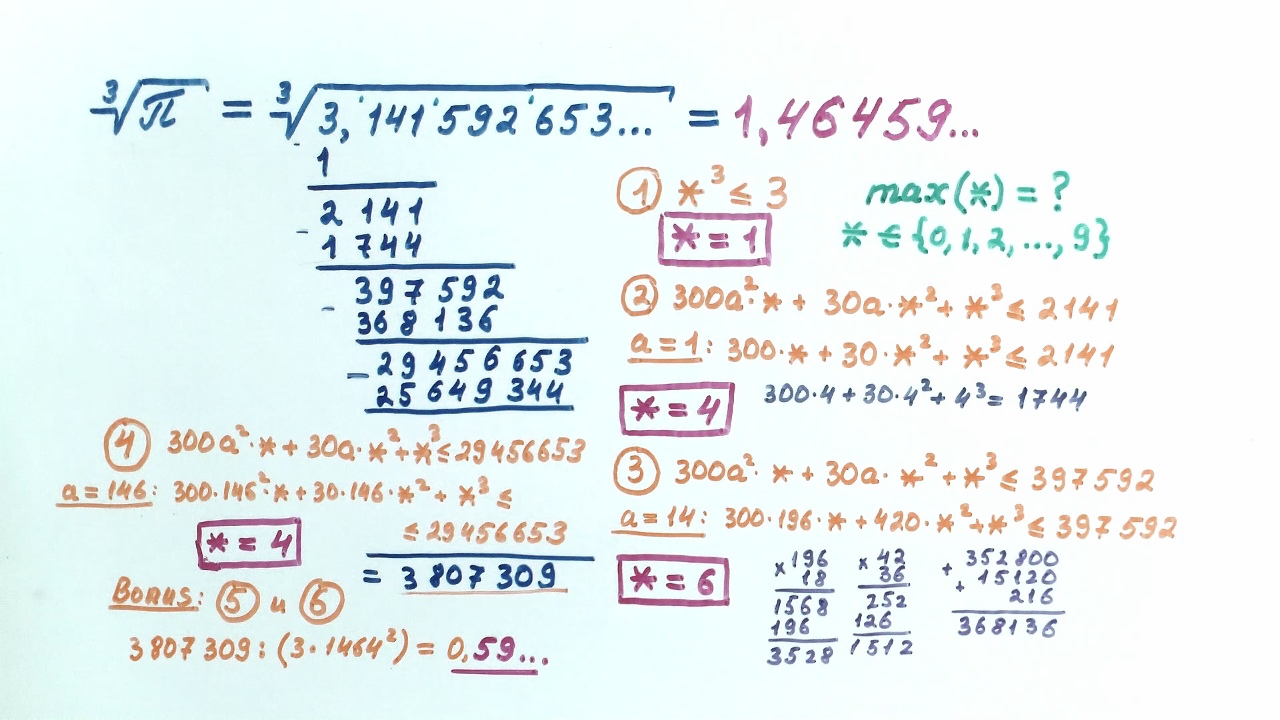 ∛π = ∛3,'141'592'653... = 1,46459...
1
2 141
- 1 744
397 592
- 368 136
- 29 456 653
25 649 344
= 3 807 309
① *³ ≤ 3
* = 1
max(*) = ?
* ∈ {0, 1, 2, ..., 9}
② 300a²·* + 30a·*² + *³ ≤ 2141
a = 1: 300·* + 30·*² + *³ ≤ 2141
* = 4
300·4 + 30·4² + 4³ = 1744
③ 300a²·* + 30a·*² + *³ ≤ 397 592
a = 14: 300·196·* + 420·*² + *³ ≤ 397 592
* = 6
× 196
18
1568
196
3528
× 42
36
252
126
1512
+ 352 800
+ 15120
216
368136
④ 300a²·* + 30a·*² + *³ ≤ 29456653
a = 146: 300·146²·* + 30·146·*² + *³ ≤
≤ 29456653
* = 4
Bonus: ⑤ и ⑥
3 807 309 : (3·1464²) = 0,59...